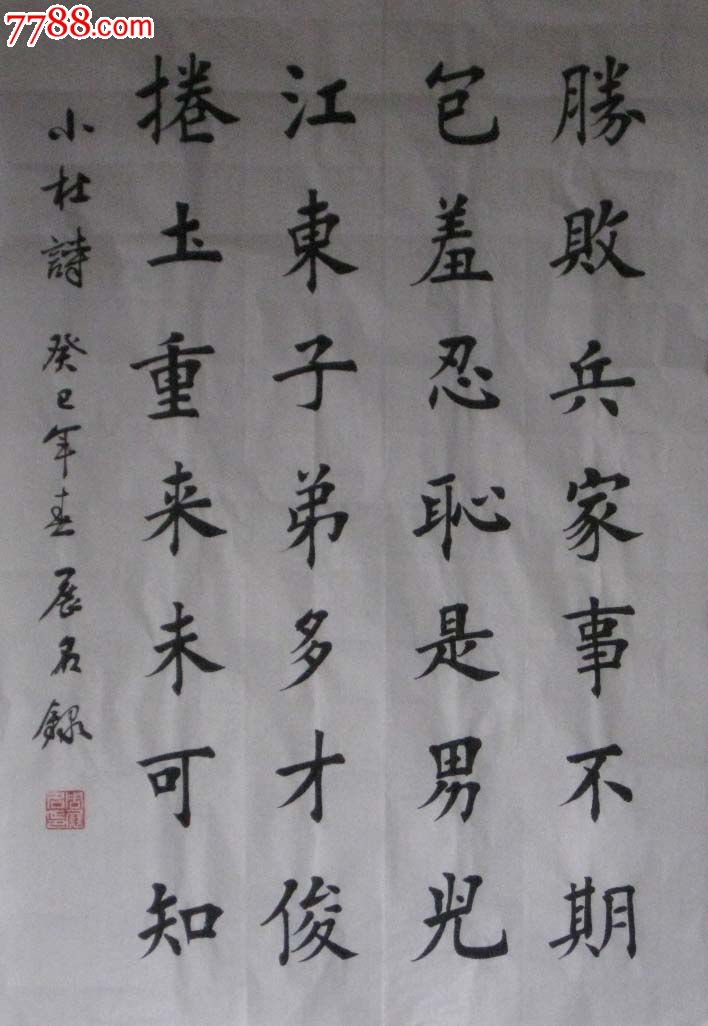 7788.com
勝敗兵家事不期
包羞忍恥是男兒
江東子弟多才俊
捲土重来未可知
小杜詩 癸巳年春 展名錄